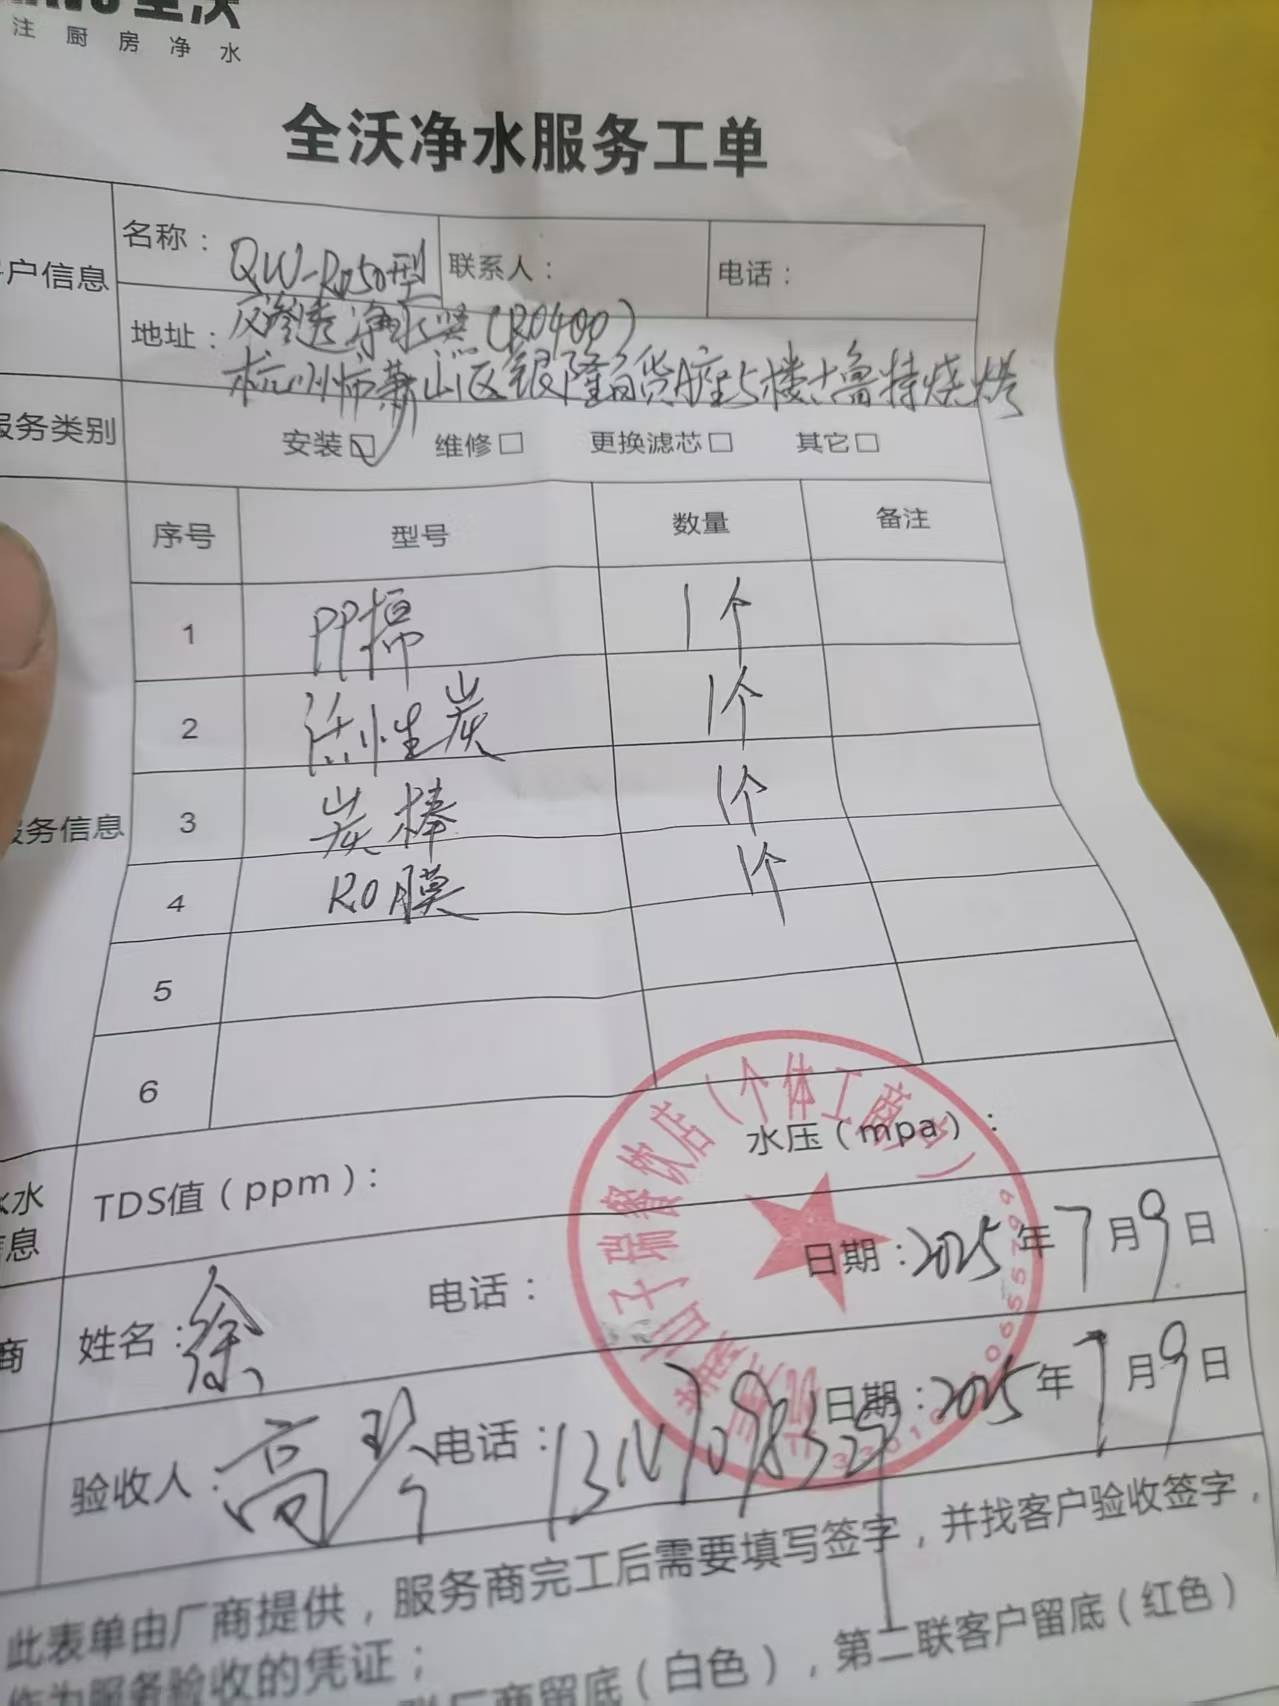 全沃
注厨房净水
全沃净水服务工单
户信息
名称：QW-R050型
联系人：
电话：
反渗透净水器（RO400）
地址：杭州市萧山区银隆百货A座5楼土鲁特烧烤
服务类别
安装☑ 维修□ 更换滤芯□ 其它□
序号 型号 数量 备注
服务信息
1 PP棉 1个
2 活性炭 1个
3 炭棒 1个
4 RO膜 1个
5
6
水
信息
TDS值（ppm）：
水压（mpa）：
商
姓名：徐
电话：
日期：2025年7月9日
验收人：高
电话：
日期：2025年7月9日
子瑞餐饮店（个体工商户）
此表单由厂商提供，服务商完工后需要填写签字，并找客户验收签字，
作为服务验收的凭证；
联厂商留底（白色），第二联客户留底（红色）